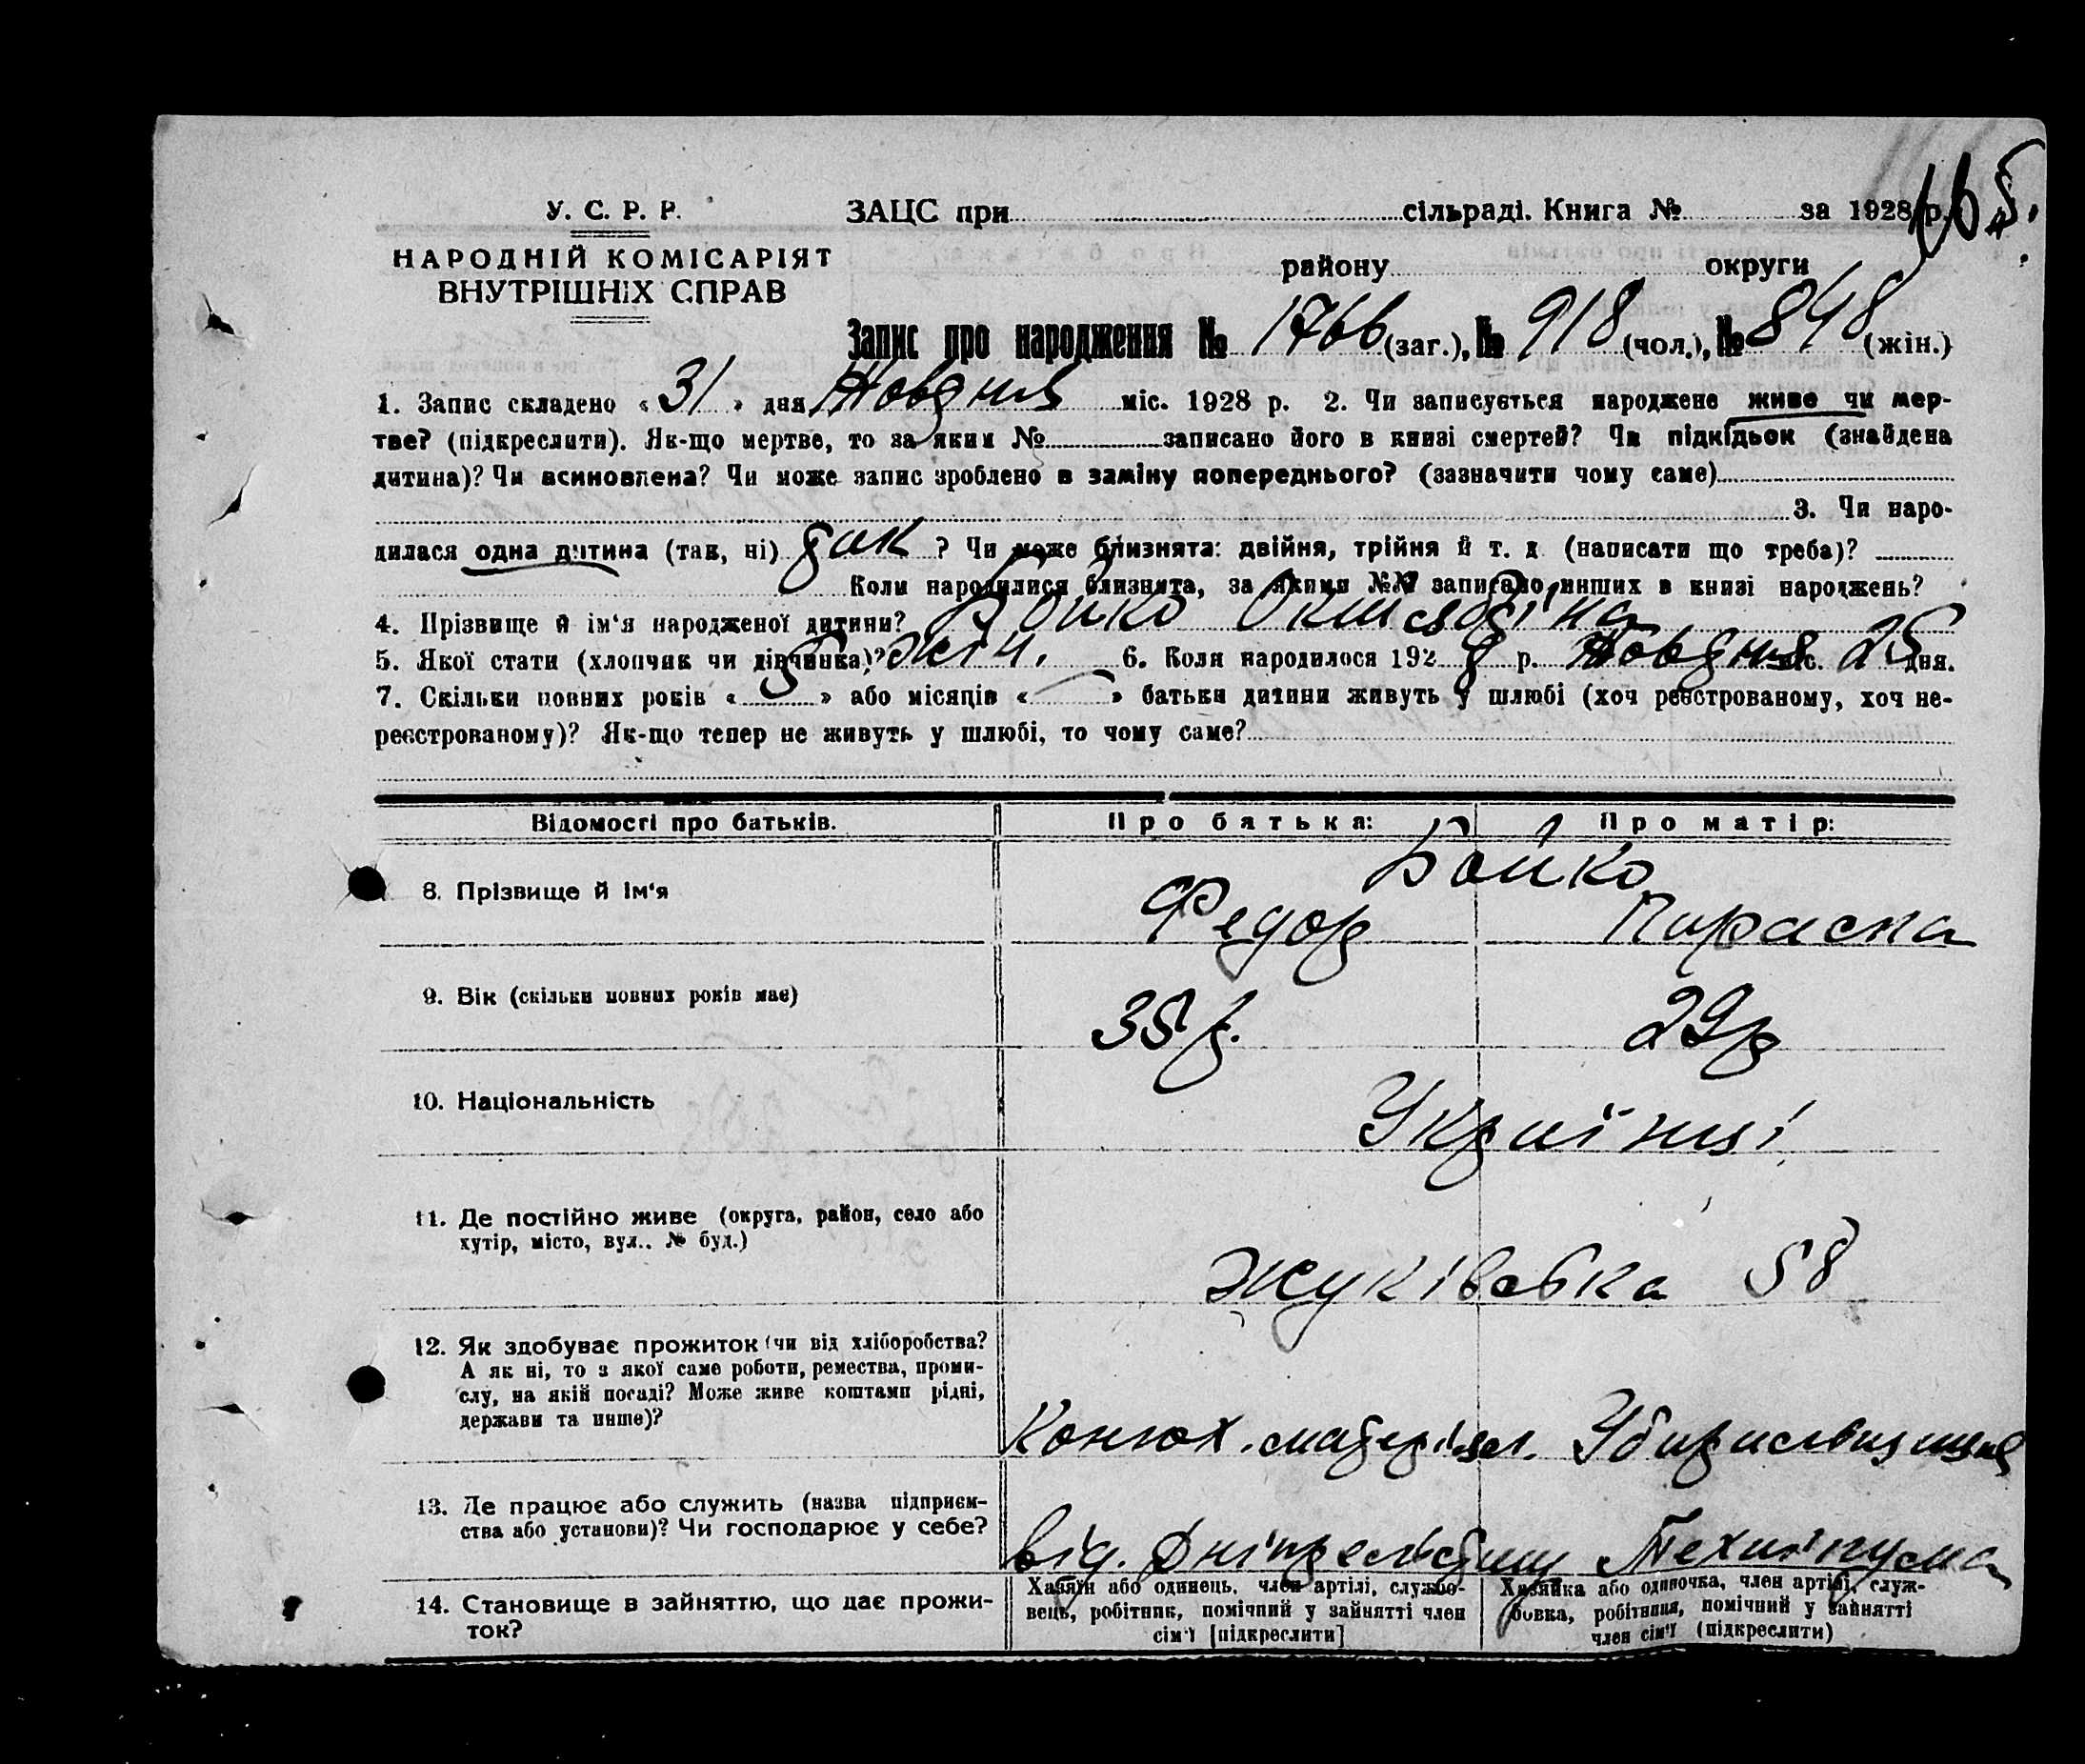 165.
У. С. Р. Р. ЗАЦС при сільраді. Книга № за 1928 р.
НАРОДНІЙ КОМІСАРІЯТ
ВНУТРІШНІХ СПРАВ
району округи
Запис про народження № 1766 (заг.), № 918 (чол.), № 848 (жін.)
1. Запис складено « 31 » дня Жовдня міс. 1928 р. 2. Чи записується народжене живе чи мер-
тве? (підкреслити). Як-що мертве, то за яким № записано його в книзі смертей? Чи підкідьок (знайдена
дитина)? Чи всиновлена? Чи може запис зроблено в заміну попереднього? (зазначити чому саме)
3. Чи наро-
дилася одна дитина (так, ні) так ? Чи може близнята: двійня, трійня й т. д (написати що треба)?
Коли народилися близнята, за якими №№ записано инших в книзі народжень?
4. Прізвище й ім‘я народженої дитини? Бойко
5. Якої стати (хлопчик чи дівчинка)? жін. 6. Коли народилося 1928 р. Жовдня міс. 25 дня.
7. Скільки повних років « 5 » або місяців « — » батьки дитини живуть у шлюбі (хоч реєстрованому, хоч не-
реєстрованому)? Як-що тепер не живуть у шлюбі, то чому саме?
Відомості про батьків. Про батька: Про матір:
Бойко
8. Прізвище й ім‘я Федор Параска
9. Вік (скільки повних років має) 35 р. 29 р
10. Національність Українці
11. Де постійно живе (округа, район, село або
хутір, місто, вул.. № буд.)
Жуківська 58
12. Як здобуває прожиток (чи від хліборобства?
А як ні, то з якої саме роботи, ремества, проми-
слу, на якій посаді? Може живе коштами рідні,
держави та инше)?
Конюх. матеріял.
13. Де працює або служить (назва підприєм-
ства або установи)? Чи господарює у себе?
від. Техникума
14. Становище в зайняттю, що дає прожи-
ток?
Хазяїн або одинець, член артілі, службо-
вець, робітник, помічний у зайнятті член
сім‘ї [підкреслити]
Хазяйка або одиночка, член артілі, служ-
бовка, робітниця, помічний у зайнятті
член сім‘ї (підкреслити)